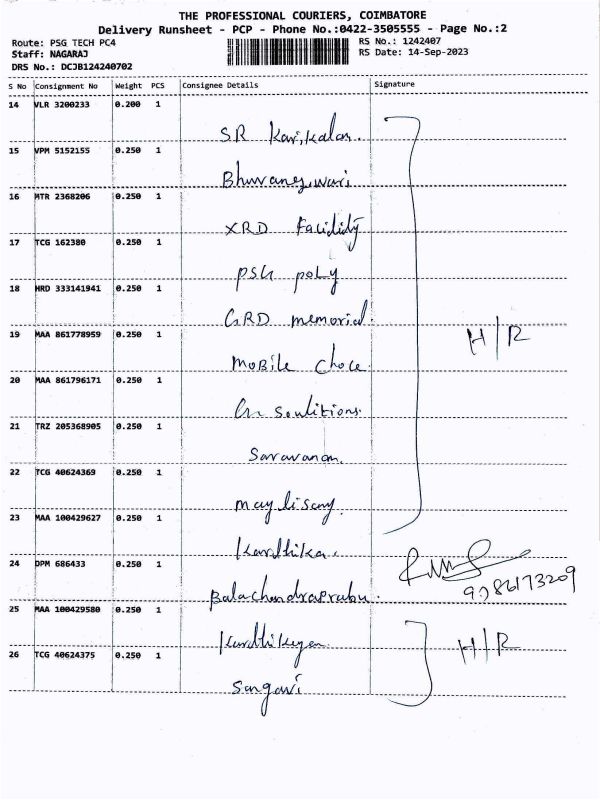 THE PROFESSIONAL COURIERS, COIMBATORE
Delivery Runsheet - PCP - Phone No.:0422-3505555 - Page No.:2
Route: PSG TECH PC4
RS No.: 1242407
Staff: NAGARAJ
RS Date: 14-Sep-2023
DRS No.: DCJB124240702
S No Consignment No Weight PCS Consignee Details Signature
14 VLR 3200233 0.200 1
SR Karikalan.
15 VPM 5152155 0.250 1
Bhuvaneswari
16 MTR 2368206 0.250 1
XRD Facility
17 TCG 162380 0.250 1
PSG poly
18 HRD 333141941 0.250 1
GRD memorial.
19 MAA 861778959 0.250 1
H/R
Mobile Choce
20 MAA 861796171 0.250 1
Gn Soulitions.
21 TRZ 205368905 0.250 1
Saravanan.
22 TCG 40624369 0.250 1
23 MAA 100429627 0.250 1
Karthika.
24 DPM 686433 0.250 1
Balachandraprabu.
25 MAA 100429580 0.250 1
Karthikeyan
H/R
26 TCG 40624375 0.250 1
Sangavi